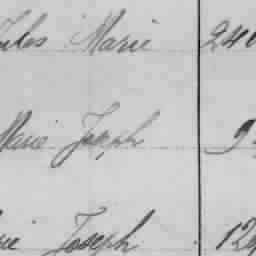 Jules Marie 240
Marie Joseph 9
Marie Joseph 124